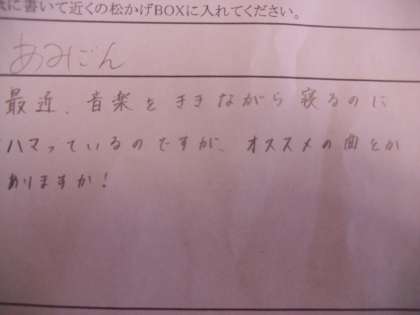 に書いて近くの松かげBOXに入れてください。
あみごん
最近、音楽をききながら寝るのに
ハマっているのですが、オススメの曲とか
ありますか!